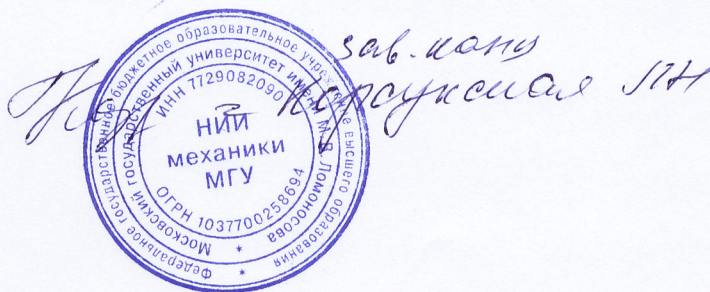 зав. канц
ЛН
Федеральное государственное бюджетное образовательное учреждение высшего образования
*
Московский государственный университет имени М.В. Ломоносова
*
ИНН 7729082090
НИИ
механики
МГУ
ОГРН 1037700258694